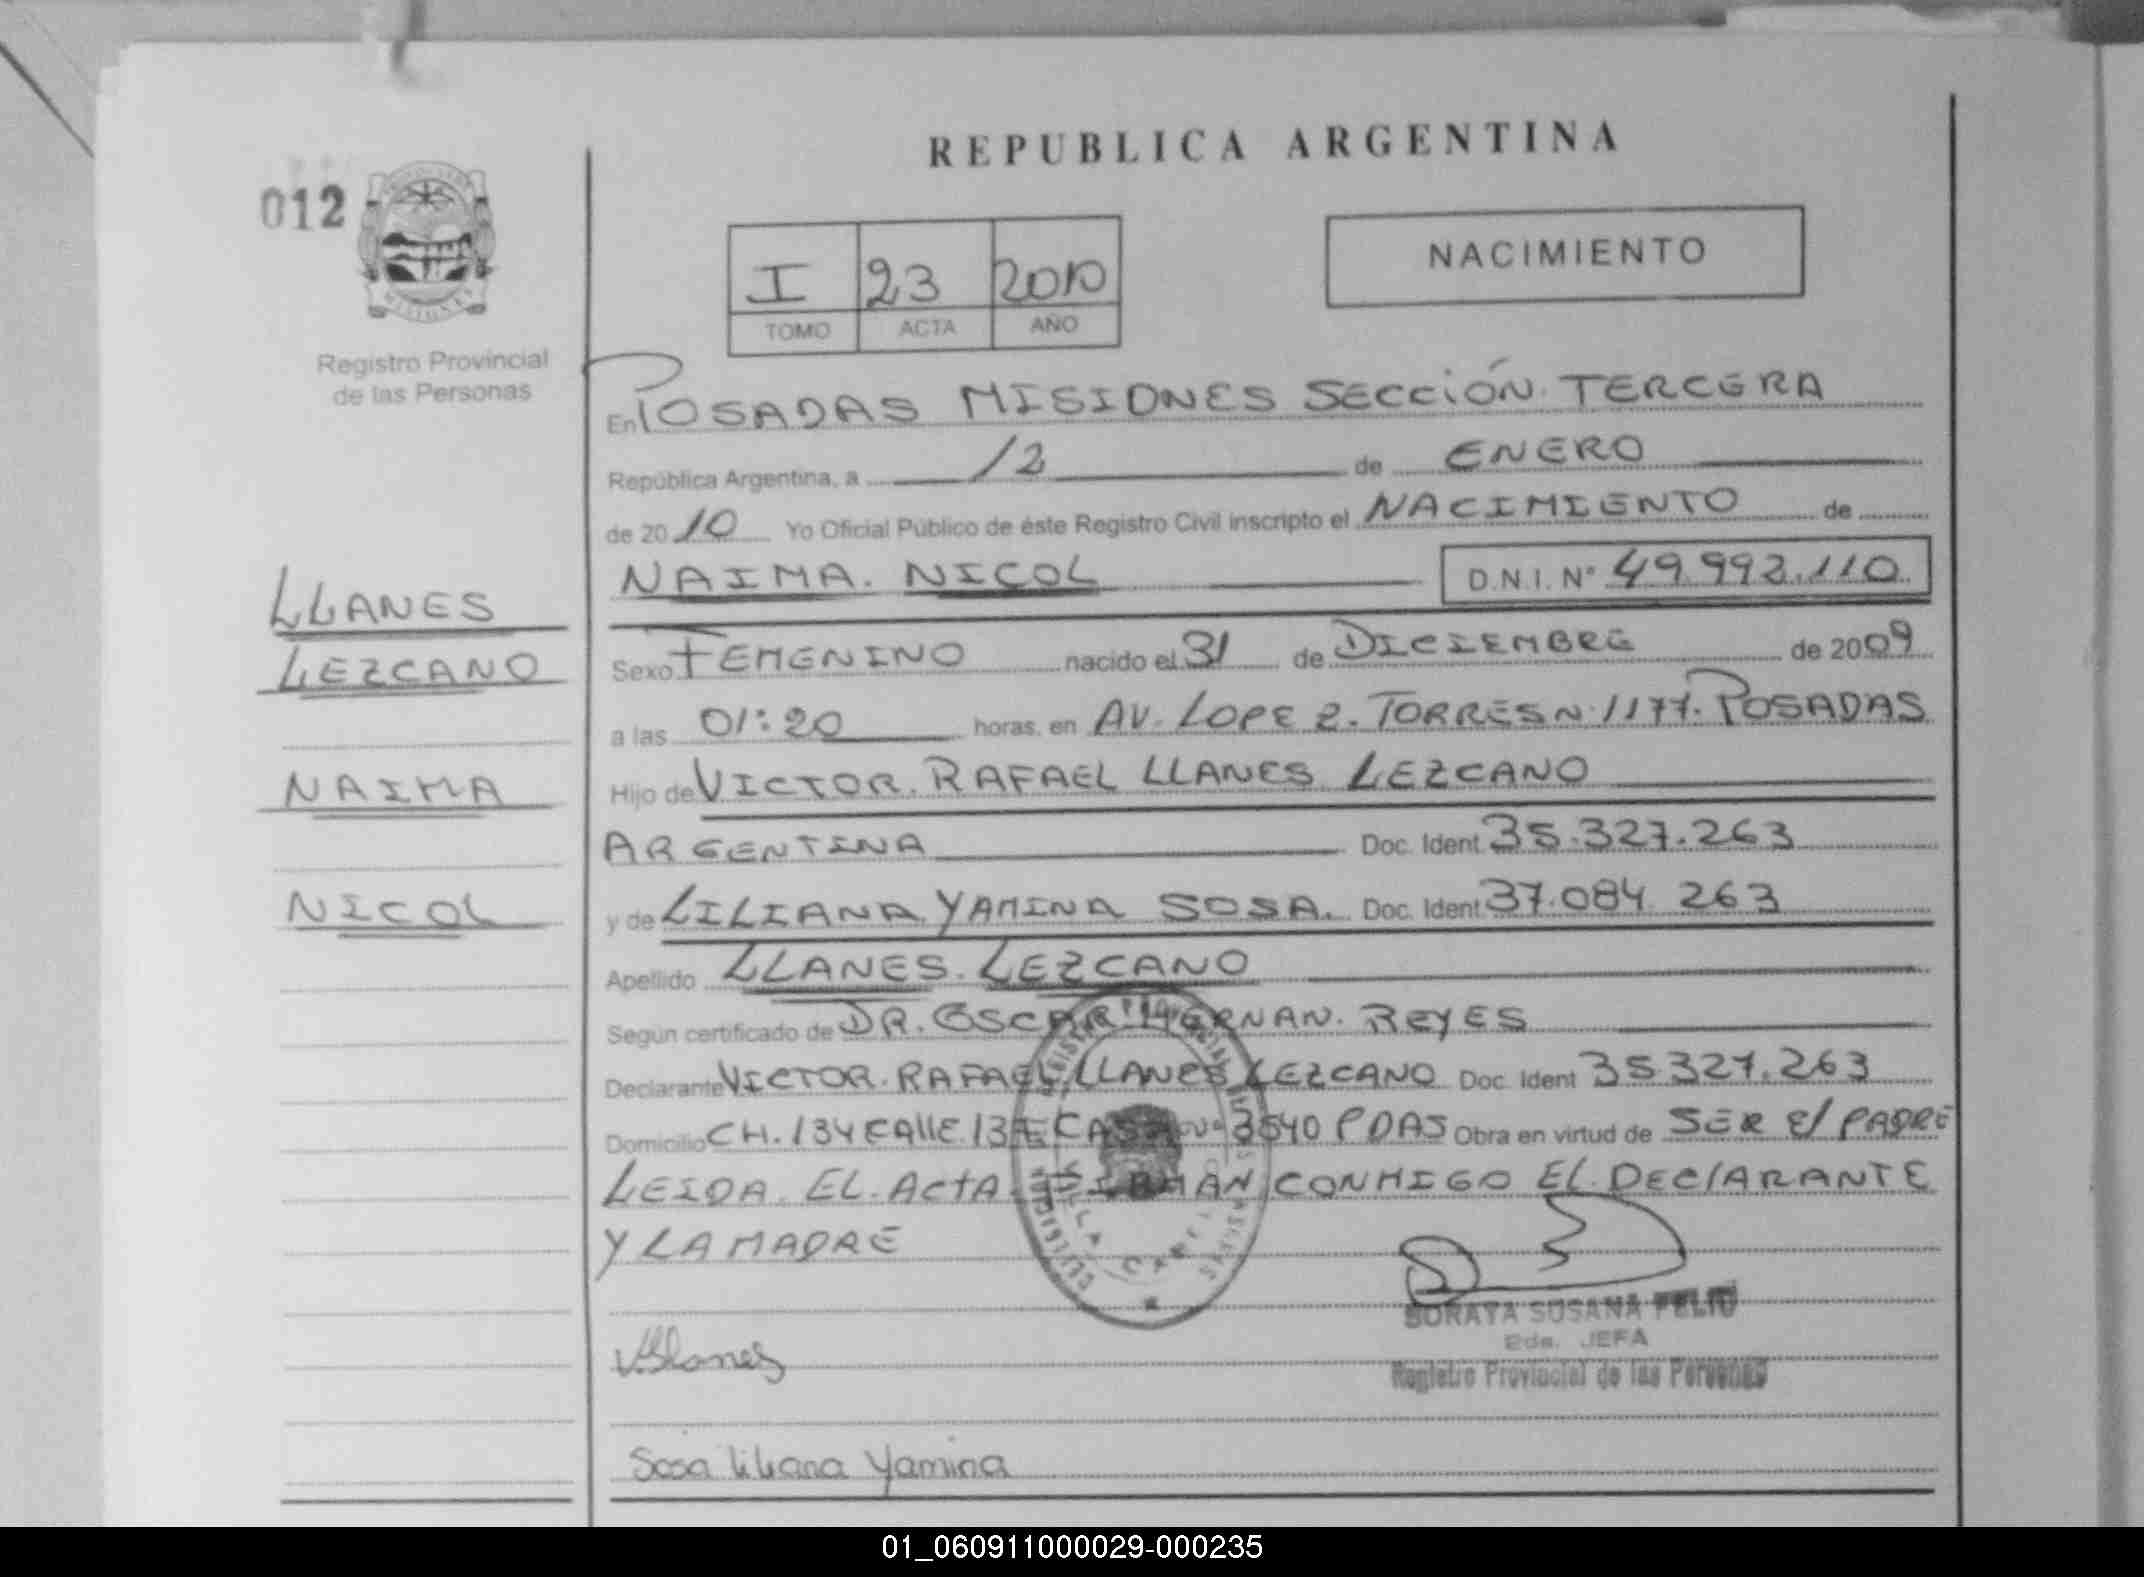 REPUBLICA ARGENTINA
012
NACIMIENTO
I 23 2010
TOMO ACTA AÑO
Registro Provincial
de las Personas
En POSADAS MISIONES SECCIÓN TERCERA
República Argentina, a 12 de ENERO
de 20 10 Yo Oficial Público de éste Registro Civil inscripto el NACIMIENTO de
NAIMA. NICOL D.N.I. Nº 49.992.110
LLANES
LEZCANO
NAIMA
NICOL
Sexo FEMENINO nacido el 31 de DICIEMBRE de 2009
a las 01:20 horas, en AV. LOPEZ. TORRES N. 1177. POSADAS
Hijo de VICTOR. RAFAEL LLANES LEZCANO
ARGENTINA Doc. Ident. 35.327.263
y de LILIANA YAMINA SOSA. Doc. Ident. 37.084 263
Apellido LLANES. LEZCANO
Según certificado de DR. OSCAR HERNAN. REYES
Declarante VICTOR. RAFAEL LLANES LEZCANO Doc. Ident 35327.263
Domicilio CH. 134 CAllE. 137 CASA Nº 3540 PDAS Obra en virtud de SER El PADRE
LEIDA. EL. ActA. FIRMAN CONMIGO EL DEClARANTE
Y LA MADRE
SORAYA SUSANA FELIU
2da. JEFA
Registro Provincial de las Personas
VLlanes
Sosa liliana Yamina
01_060911000029-000235